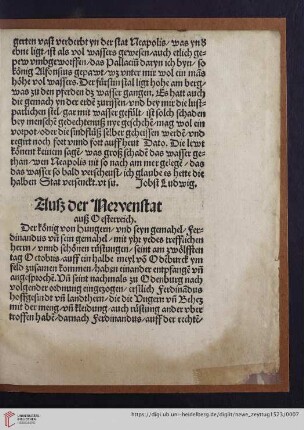 gerten vast verderbt yn der stat Neapolis/ was yn d'
ebni ligt ist als vol wassers gewesen/ auch etlich ge-
pew vmbgeworffen/ das Pallaciū daryn ich byn/ so
könig Alfonsus gepawt/ wz vnter mir wol ein mās
höhe vol wassers. Der fürstin stal ligt hohe am berg/
was zu den pferden dz wasser gangen. Es hatt auch
die gemach yn der erde zurissen/ vnd bey mir die lust-
parlichen stel/ gar mit wasser gefült/ ist solch schaden
bey mensche gedechtenuß nye geschehē/ mag wol ein
vorpot oder die sindfluß selber geheissen werdē/ vnd
regnt noch fort vnnd fort auff heut Dato. Die lewt
könent keinem sagē/ was groß schadē das wasser ge-
than/ wen Neapolis nit so nach am mer gelegē/ das
das wasser so bald verscheust/ ich glaube es hette die
halben Stat versenckt. vt su. Jobst Ludwig.
Auß der Newenstat
auß Oesterreich.
Der könig von Hungern/ vnd seyn gemahel/ Fer-
dinandus vn sein gemahel/ mit yhr yedes trefflichen
herrn/ vnnd schönen rüstungen/ seint am zwölfften
tag Octobris/ auff ein halbe meyl vō Odeburck ym
feld zusamen kommen/ habn einander entpfangē vn̄
angesprochē. Vn̄ seint nachmals zu Odenburg nach
volgender ordnung eingezogen/ erstlich Ferdinādus
hoffgesindt vn̄ landthern/ die die Vngern vn̄ Behez
mit der meng/ vn̄ kleidung/ auch rüstung ander vber
troffen habē/ darnach Ferdinandus/ auff der rechtē/
UNIVERSITÄTS-
BIBLIOTHEK
HEIDELBERG
https://digi.ub.uni-heidelberg.de/diglit/newe_zeyttug1523/0007